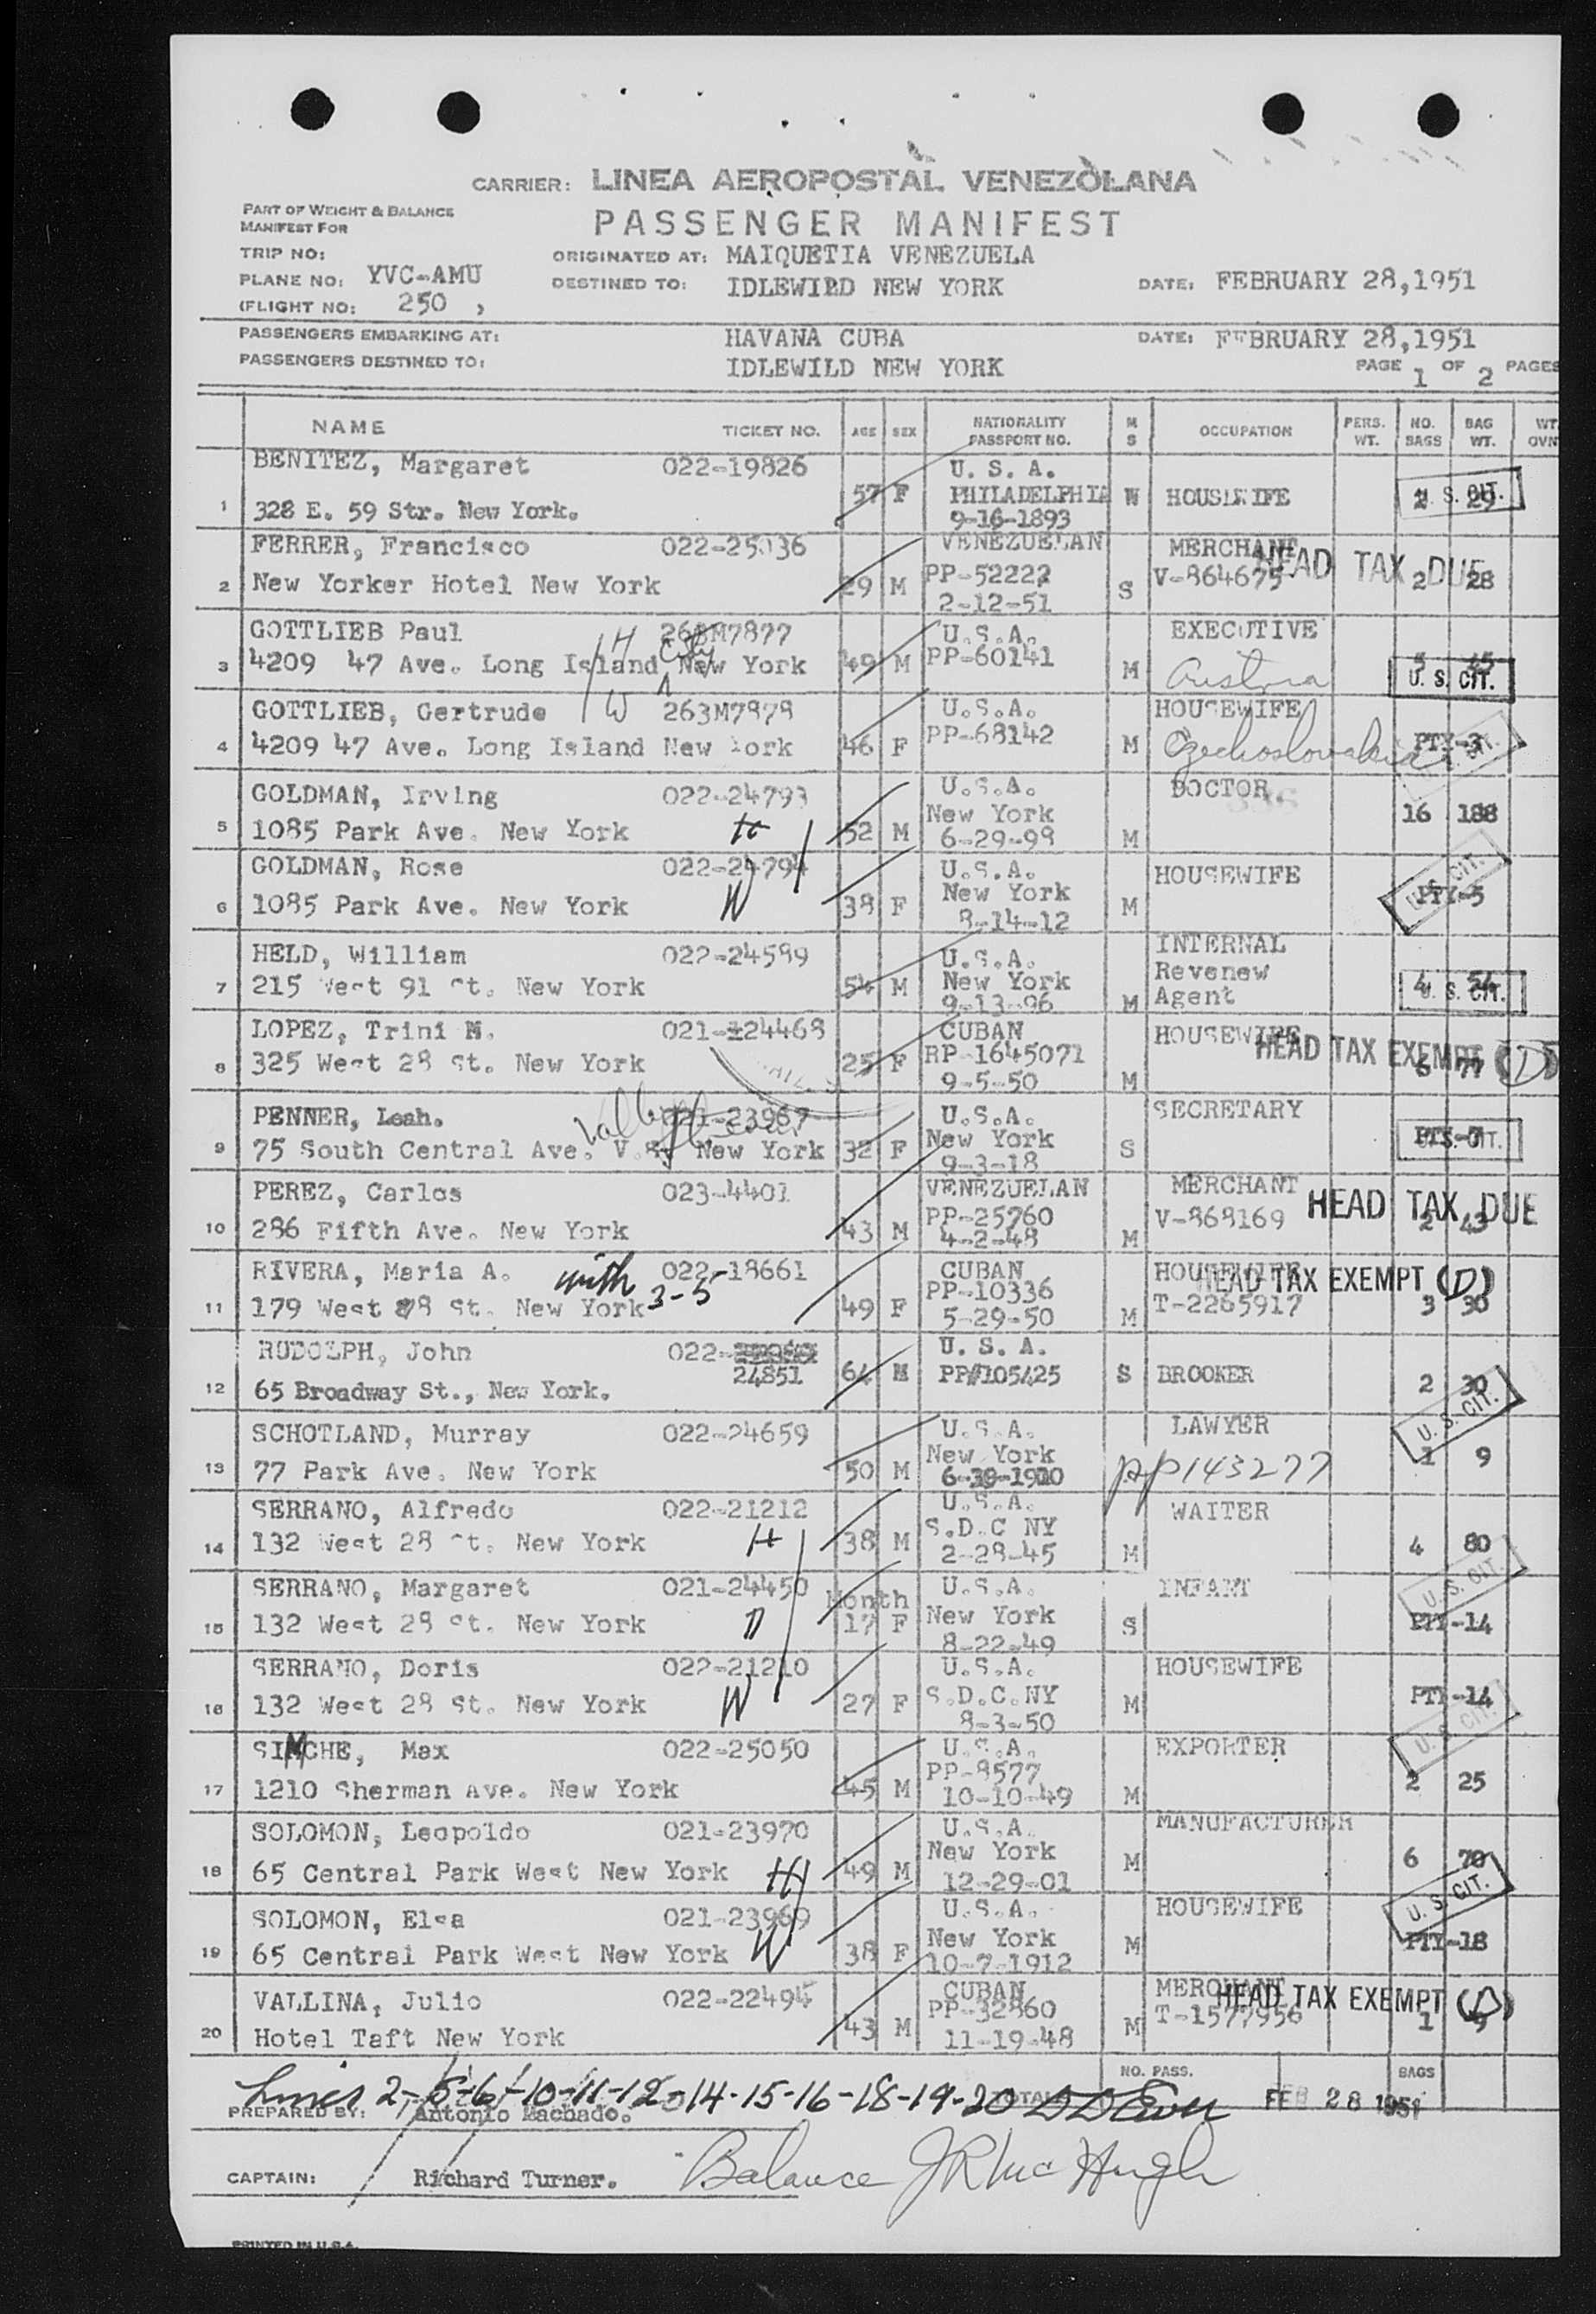 CARRIER: LINEA AEROPOSTAL VENEZOLANA
PART OF WEIGHT & BALANCE
MANIFEST FOR
PASSENGER MANIFEST
TRIP NO:
ORIGINATED AT: MAIQUETIA VENEZUELA
PLANE NO: YVC-AMU
DESTINED TO: IDLEWILD NEW YORK
DATE: FEBRUARY 28,1951
(FLIGHT NO: 250 )
PASSENGERS EMBARKING AT: HAVANA CUBA
DATE: FEBRUARY 28,1951
PASSENGERS DESTINED TO: IDLEWILD NEW YORK
PAGE 1 OF 2 PAGES
NAME TICKET NO. AGE SEX NATIONALITY PASSPORT NO. M S OCCUPATION PERS. WT. NO. BAGS BAG WT. WT. OVN
BENITEZ, Margaret 022-19826 U. S. A.
1 328 E. 59 Str. New York. 57 F PHILADELPHIA W HOUSEWIFE 2 29 U. S. CIT.
9-16-1893
FERRER, Francisco 022-25036 VENEZUELAN MERCHANT
2 New Yorker Hotel New York 29 M PP-52222 S V-864675 HEAD TAX DUE 2 28
2-12-51
GOTTLIEB Paul 263M7877 U.S.A. EXECUTIVE
H City
3 4209 47 Ave. Long Island New York 49 M PP-60141 M Austria 5 45 U. S. CIT.
GOTTLIEB, Gertrude W 263M7878 U.S.A. HOUSEWIFE
4 4209 47 Ave. Long Island New York 46 F PP-68142 M Czechoslovakia PTY-3
GOLDMAN, Irving 022-24793 U.S.A. DOCTOR
5 1085 Park Ave. New York H 52 M New York M 16 188
6-29-98
GOLDMAN, Rose 022-24794 U.S.A. HOUSEWIFE
6 1085 Park Ave. New York W 38 F New York M PTY-5 U. S. CIT.
8-14-12
HELD, William 022-24589 U.S.A. INTERNAL
7 215 West 91 St. New York 54 M New York M Revenew 4 54 U. S. CIT.
9-13-96 Agent
LOPEZ, Trini M. 021-24468 CUBAN HOUSEWIFE
8 325 West 28 St. New York 25 F RP-1645071 M HEAD TAX EXEMPT (D) 6 77
9-5-50
PENNER, Leah. 021-23967 U.S.A. SECRETARY
Valley Stream
9 75 South Central Ave. V.S. New York 32 F New York S PTY-7 U. S. CIT.
9-3-18
PEREZ, Carlos 023-4401 VENEZUELAN MERCHANT
10 286 Fifth Ave. New York 43 M PP-25760 M V-868169 HEAD TAX DUE 2 43
4-2-48
RIVERA, Maria A. 022-18661 CUBAN HOUSEWIFE
with 3-5
11 179 West 88 St. New York 49 F PP-10336 M T-2265917 HEAD TAX EXEMPT (D) 3 30
5-29-50
RUDOLPH, John 022- U. S. A.
24851 64 M PP#105425 S BROOKER
12 65 Broadway St., New York. 2 30 U. S. CIT.
SCHOTLAND, Murray 022-24659 U.S.A. LAWYER
13 77 Park Ave. New York 50 M New York pp143277 1 9
SERRANO, Alfredo 022-21212 U.S.A. WAITER
14 132 West 28 St. New York H 38 M S.D.C NY M 4 80
2-28-45
SERRANO, Margaret 021-24450 Month U.S.A. INFANT U. S. CIT.
15 132 West 28 St. New York D 17 F New York S PTY-14
8-22-49
SERRANO, Doris 022-21210 U.S.A. HOUSEWIFE
16 132 West 28 St. New York W 27 F S.D.C.NY M PTY-14
8-3-50 U. S. CIT.
SIMCHE, Max 022-25050 U.S.A. EXPORTER
17 1210 Sherman Ave. New York 45 M PP-8577 M 2 25
10-10-49
SOLOMON, Leopoldo 021-23970 U.S.A. MANUFACTURER
18 65 Central Park West New York H 49 M New York M 6 70
12-29-01 U. S. CIT.
SOLOMON, Elsa 021-23969 U.S.A. HOUSEWIFE
19 65 Central Park West New York W 38 F New York M PTY-18
10-7-1912
VALLINA, Julio 022-22494 CUBAN MERCHANT
20 Hotel Taft New York 43 M PP-32860 M T-1577956 HEAD TAX EXEMPT (D) 1 9
11-19-48
NO. PASS. BAGS
Lines 2-5-6-10-11-12-14-15-16-18-19-20 TOTALS FEB 28 1951
PREPARED BY: Antonio Machado.
CAPTAIN: Richard Turner. Balance JR McHugh
PRINTED IN U.S.A.